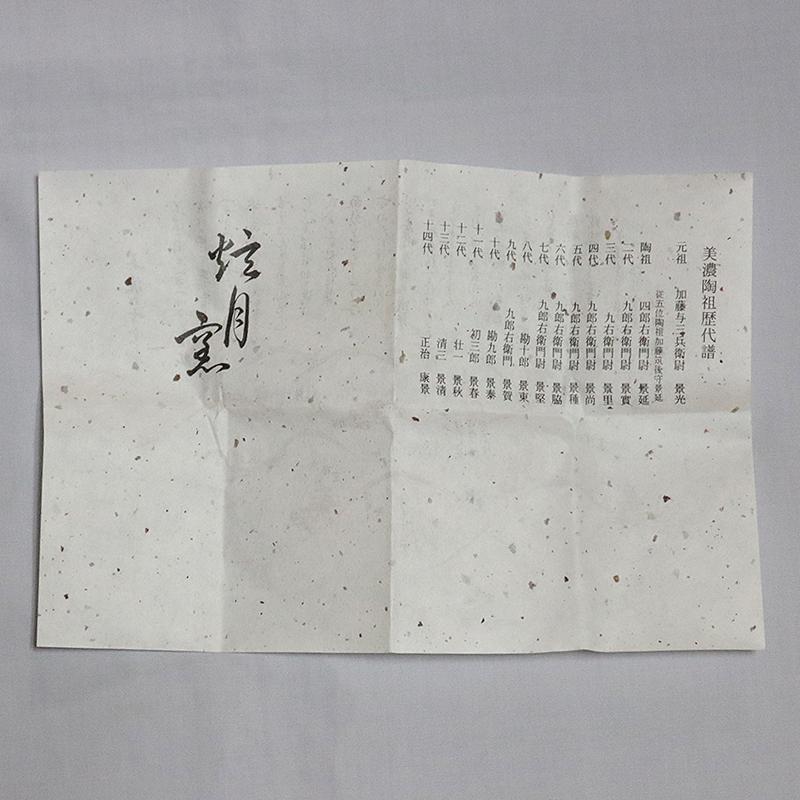 美濃陶祖歴代譜
元祖 加藤与三兵衛尉 景光
従五位陶祖加藤筑後守景延
陶祖 四郎右衛門尉 景延
二代 九郎右衛門尉 景實
三代 九右衛門尉 景里
四代 九郎右衛門尉 景尚
五代 九郎右衛門尉 景種
六代 九郎右衛門尉 景脇
七代 九郎右衛門尉 景堅
八代 勘十郎 景東
九代 九郎右衛門 景賀
十代 勘九郎 景泰
十一代 初三郎 景春
十二代 壮一 景秋
十三代 清三 景清
十四代 正治 康景
炫月窯